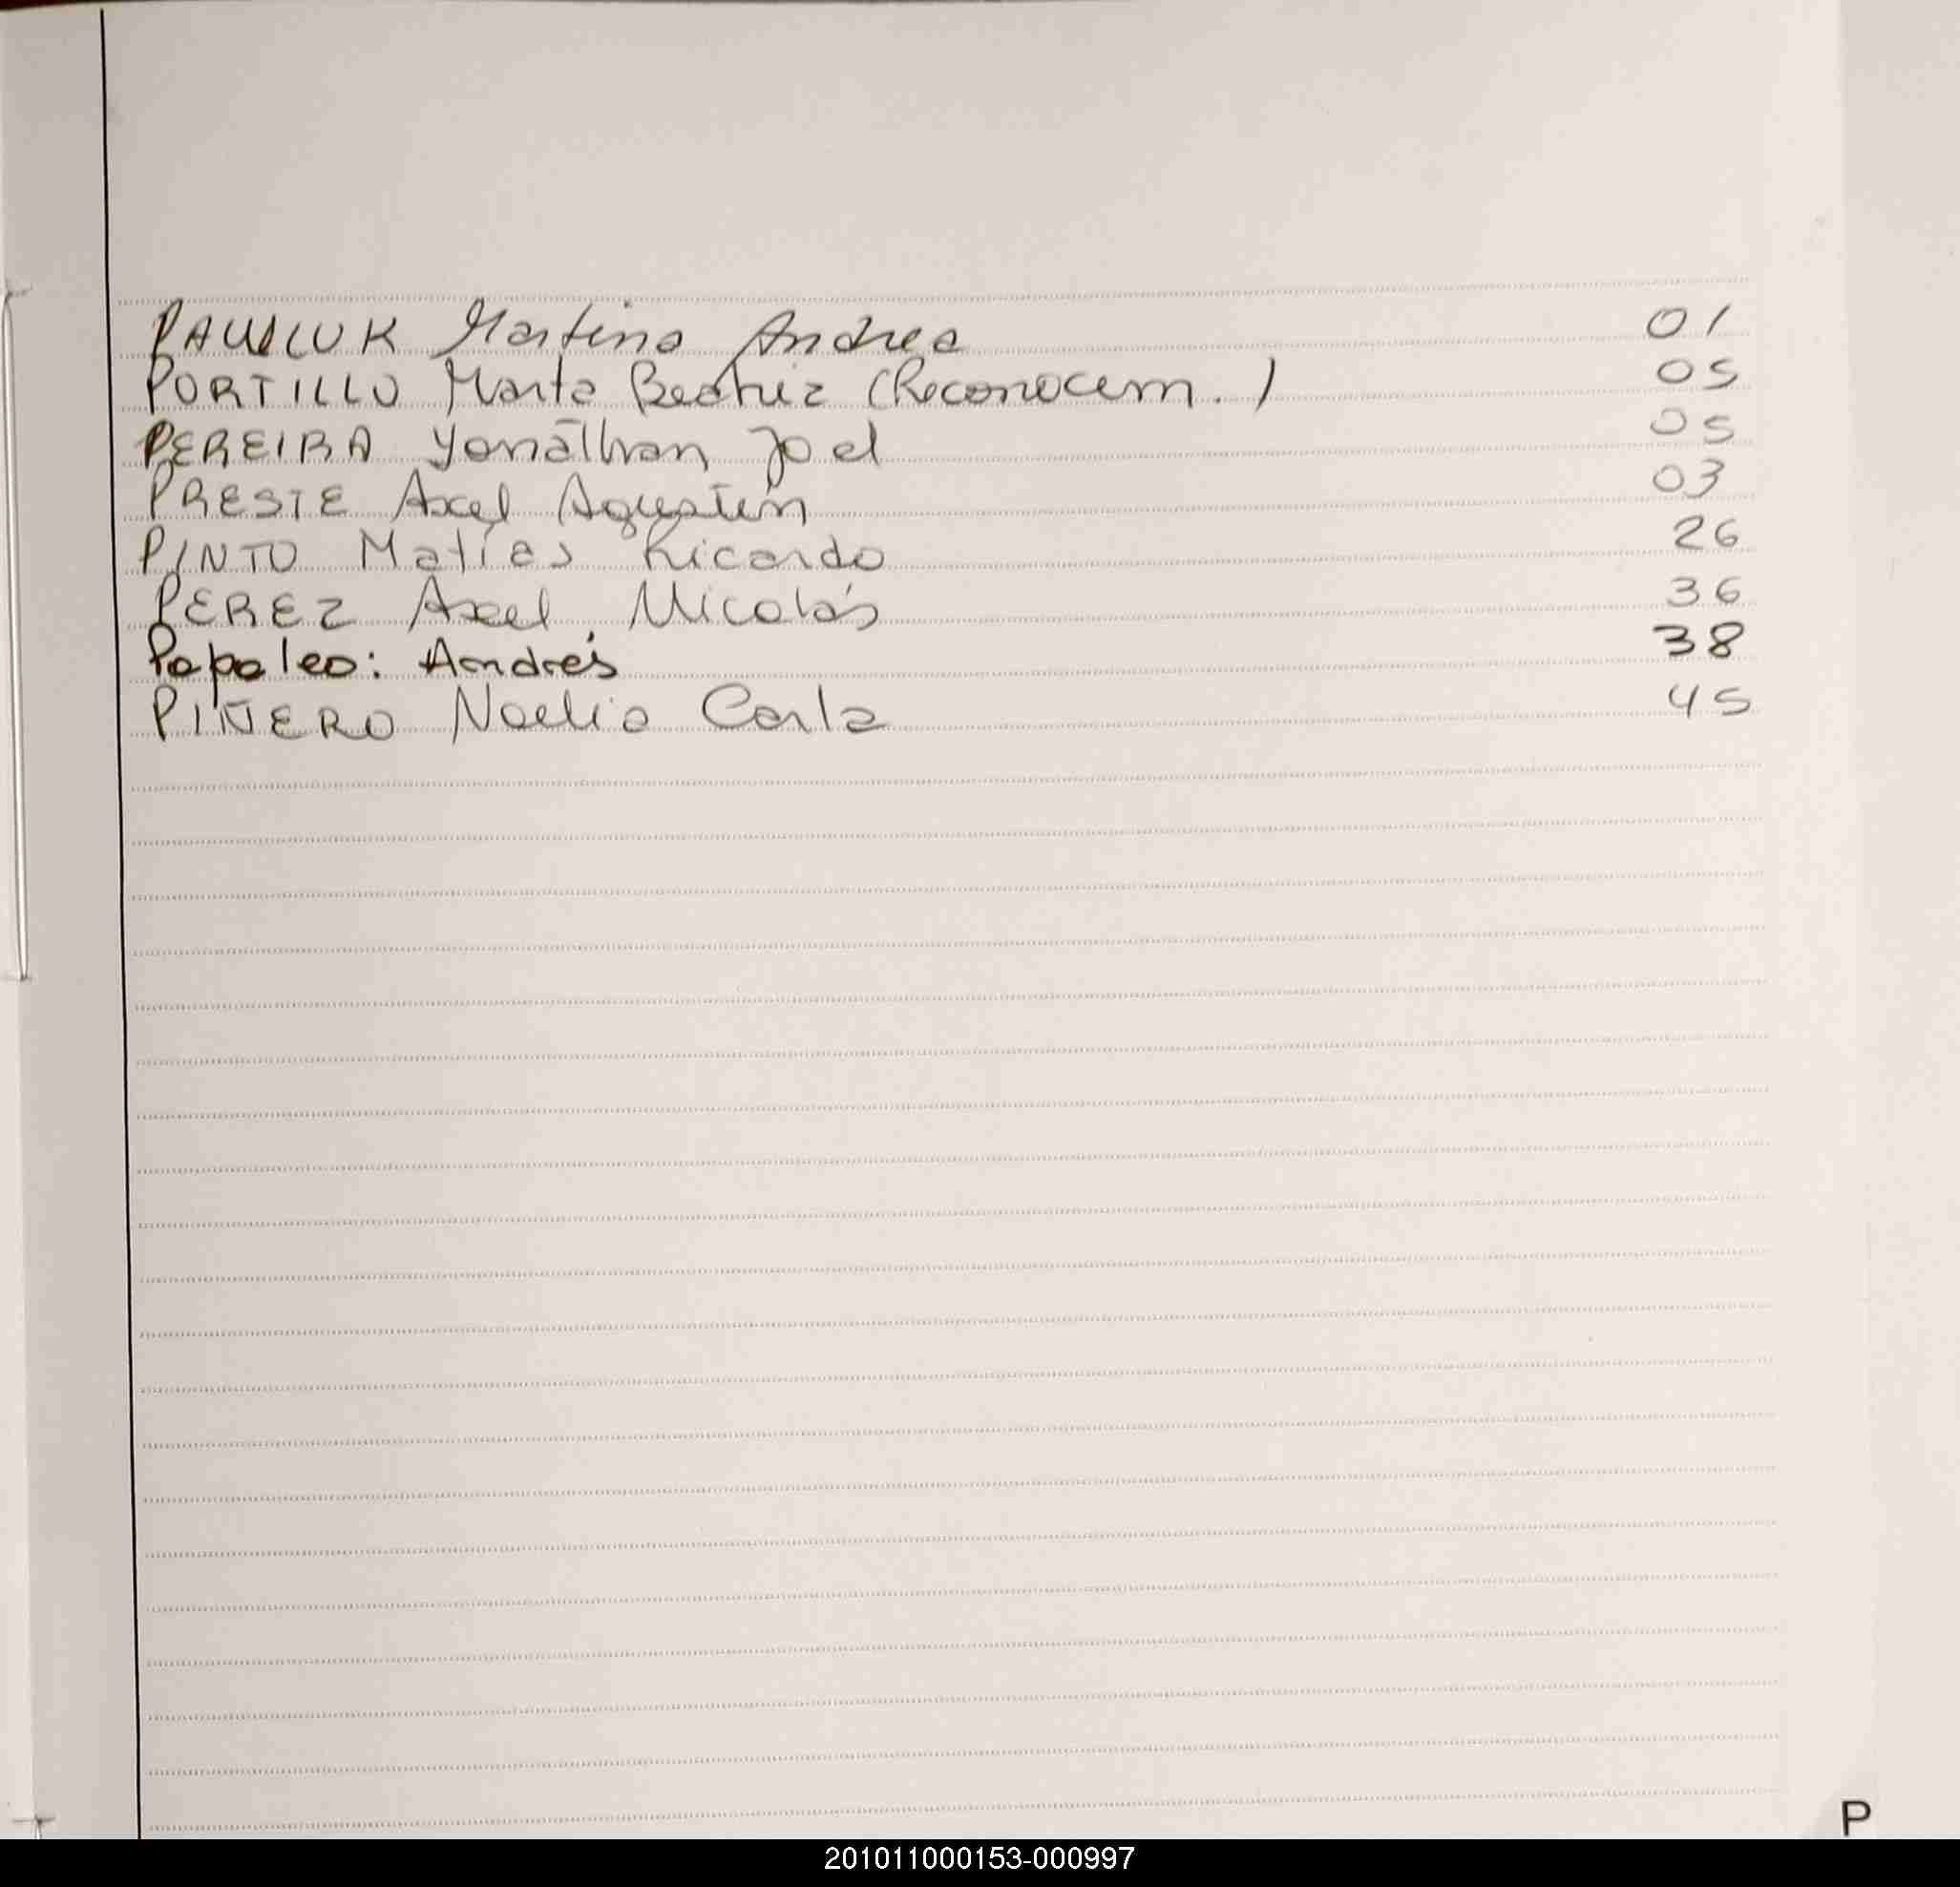 PAWLUK Martina Andrea 01
PORTILLO Marta Beatriz (Reconocem.) 05
PEREIRA Yonathan Joel 05
PRESTE Axel Agustín 03
PINTO Matías Ricardo 26
PEREZ Axel Nicolás 36
Papaleo: Andrés 38
PIÑERO Noelia Carla 45
P
201011000153-000997